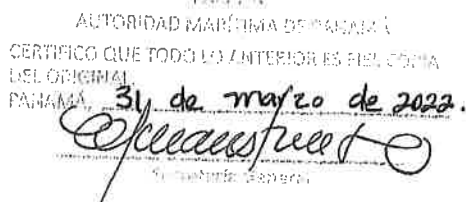 AUTORIDAD MARÍTIMA DE PANAMÁ
CERTIFICO QUE TODO LO ANTERIOR ES FIEL COPIA
DEL ORIGINAL
PANAMÁ, 31 de marzo de 2022.
Secretaría General